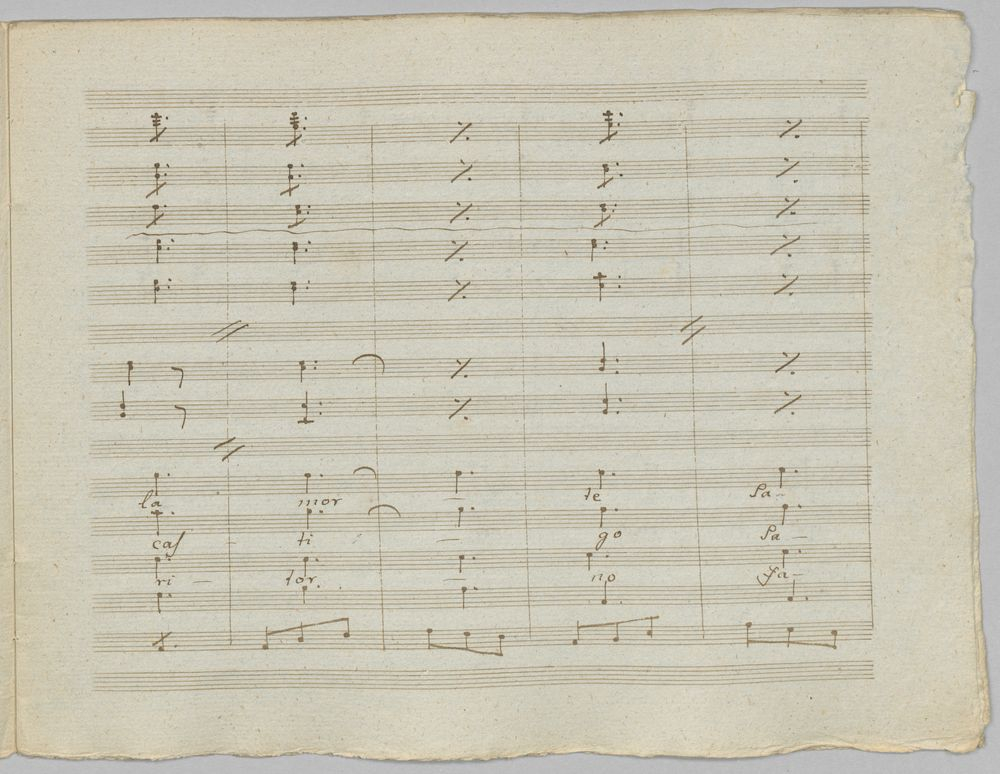 la mor - te Sa -
cas - ti - go Sa -
ri - tor - no Fa -